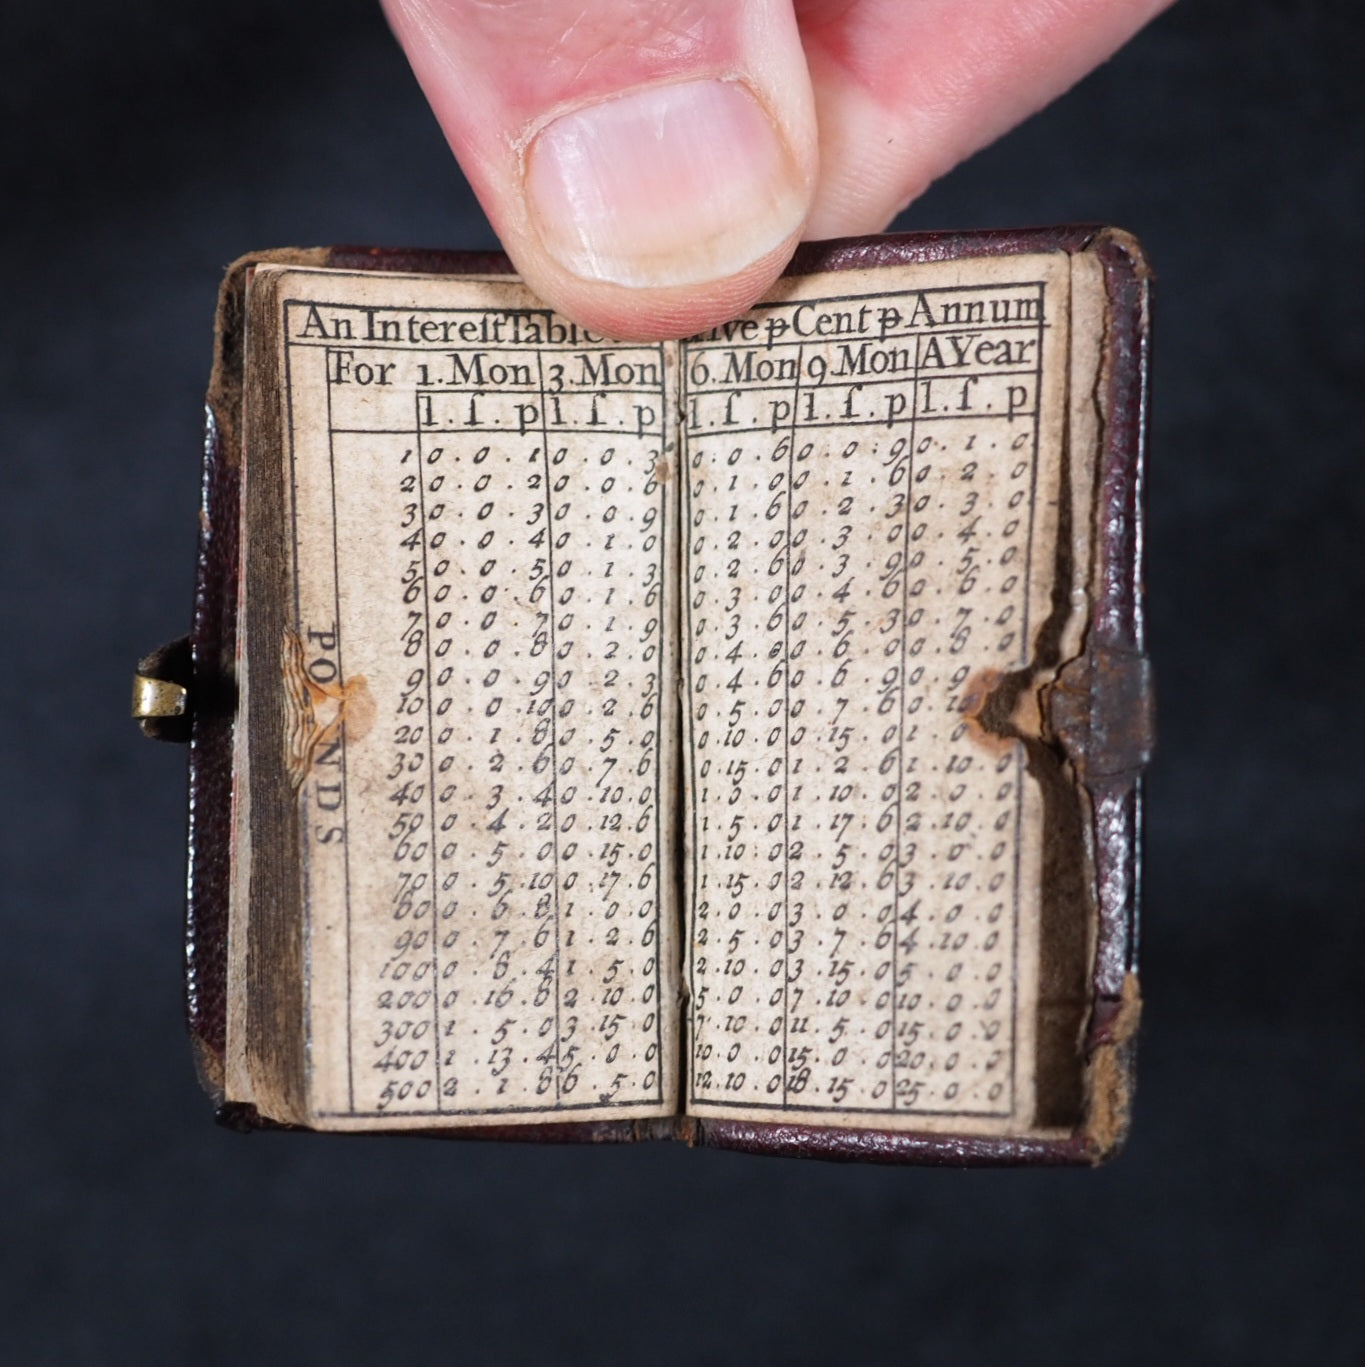 An Intereſt Table ꝑ Cent ꝑ Annum
For 1.Mon 3.Mon 6.Mon 9.Mon A Year
l . ſ . p l . ſ . p l . ſ . p l . ſ . p l . ſ . p
POUNDS
1 0 . 0 . 1 0 . 0 . 3 0 . 0 . 6 0 . 0 . 9 0 . 1 . 0
2 0 . 0 . 2 0 . 0 . 6 0 . 1 . 0 0 . 1 . 6 0 . 2 . 0
3 0 . 0 . 3 0 . 0 . 9 0 . 1 . 6 0 . 2 . 3 0 . 3 . 0
4 0 . 0 . 4 0 . 1 . 0 0 . 2 . 0 0 . 3 . 0 0 . 4 . 0
5 0 . 0 . 5 0 . 1 . 3 0 . 2 . 6 0 . 3 . 9 0 . 5 . 0
6 0 . 0 . 6 0 . 1 . 6 0 . 3 . 0 0 . 4 . 6 0 . 6 . 0
7 0 . 0 . 7 0 . 1 . 9 0 . 3 . 6 0 . 5 . 3 0 . 7 . 0
8 0 . 0 . 8 0 . 2 . 0 0 . 4 . 0 0 . 6 . 0 0 . 8 . 0
9 0 . 0 . 9 0 . 2 . 3 0 . 4 . 6 0 . 6 . 9 0 . 9 .
10 0 . 0 . 10 0 . 2 . 6 0 . 5 . 0 0 . 7 . 6 0 . 10
20 0 . 1 . 8 0 . 5 . 0 0 . 10 . 0 0 . 15 . 0 1 . 0
30 0 . 2 . 6 0 . 7 . 6 0 . 15 . 0 1 . 2 . 6 1 . 10 . 0
40 0 . 3 . 4 0 . 10 . 0 1 . 0 . 0 1 . 10 . 0 2 . 0 . 0
50 0 . 4 . 2 0 . 12 . 6 1 . 5 . 0 1 . 17 . 6 2 . 10 . 0
60 0 . 5 . 0 0 . 15 . 0 1 . 10 . 0 2 . 5 . 0 3 . 0 . 0
70 0 . 5 . 10 0 . 17 . 6 1 . 15 . 0 2 . 12 . 6 3 . 10 . 0
80 0 . 6 . 8 1 . 0 . 0 2 . 0 . 0 3 . 0 . 0 4 . 0 . 0
90 0 . 7 . 6 1 . 2 . 6 2 . 5 . 0 3 . 7 . 6 4 . 10 . 0
100 0 . 8 . 4 1 . 5 . 0 2 . 10 . 0 3 . 15 . 0 5 . 0 . 0
200 0 . 16 . 8 2 . 10 . 0 5 . 0 . 0 7 . 10 . 0 10 . 0 . 0
300 1 . 5 . 0 3 . 15 . 0 7 . 10 . 0 11 . 5 . 0 15 . 0 . 0
400 1 . 13 . 4 5 . 0 . 0 10 . 0 . 0 15 . 0 . 0 20 . 0 . 0
500 2 . 1 . 8 6 . 5 . 0 12 . 10 . 0 18 . 15 . 0 25 . 0 . 0